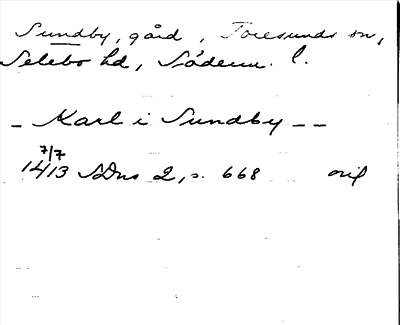 Sundby, gård, Toresunds sn,
Selebo hd, Söderm. l.
– Karl i Sundby – –
7/7
1413 SDns 2, s. 668 orig